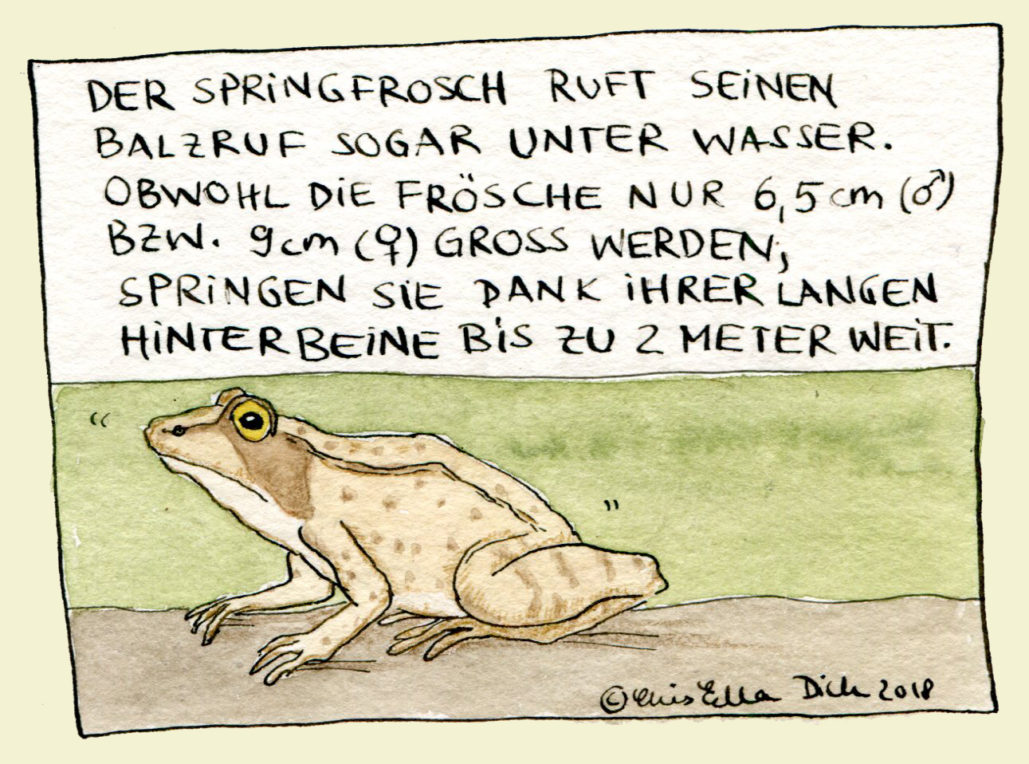 DER SPRiNGFROSCH RUFT SEiNEN
BALZRUF SOGAR UNTER WASSER.
OBWOHL DiE FRÖSCHE NUR 6,5 cm (♂)
BZW. 9 cm (♀) GROSS WERDEN,
SPRiNGEN SiE DANK iHRER LANGEN
HiNTERBEiNE BiS ZU 2 METER WEiT.
© Dick 2018